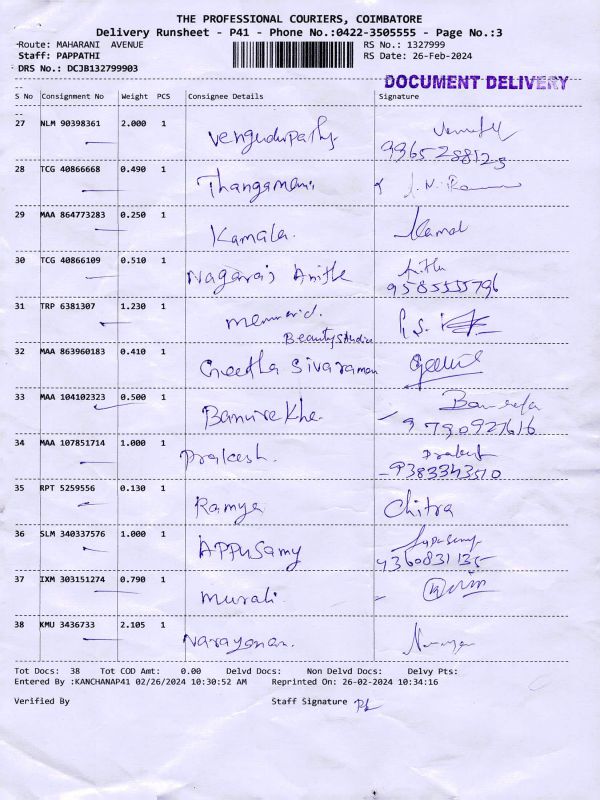 THE PROFESSIONAL COURIERS, COIMBATORE
Delivery Runsheet - P41 - Phone No.:0422-3505555 - Page No.:3
Route: MAHARANI AVENUE RS No.: 1327999
Staff: PAPPATHI RS Date: 26-Feb-2024
DRS No.: DCJB132799903
DOCUMENT DELIVERY
S No Consignment No Weight PCS Consignee Details Signature
27 NLM 90398361 2.000 1
9965288123
28 TCG 40866668 0.490 1
Thangamani
29 MAA 864773283 0.250 1
Kamala. Kamal
30 TCG 40866109 0.510 1
Nagaraj Anitha
9585555796
31 TRP 6381307 1.230 1
mermaid.
Beauty Studio
32 MAA 863960183 0.410 1
Geetha Sivaraman
33 MAA 104102323 0.500 1
Banurekha
9790927616
34 MAA 107851714 1.000 1
Prakesh. Prakesh
9383343510
35 RPT 5259556 0.130 1
Ramya Chitra
36 SLM 340337576 1.000 1
APPUSamy
9360831135
37 IXM 303151274 0.790 1
murali
38 KMU 3436733 2.105 1
Narayanan.
Tot Docs: 38 Tot COD Amt: 0.00 Delvd Docs: Non Delvd Docs: Delvy Pts:
Entered By :KANCHANAP41 02/26/2024 10:30:52 AM Reprinted On: 26-02-2024 10:34:16
Verified By Staff Signature